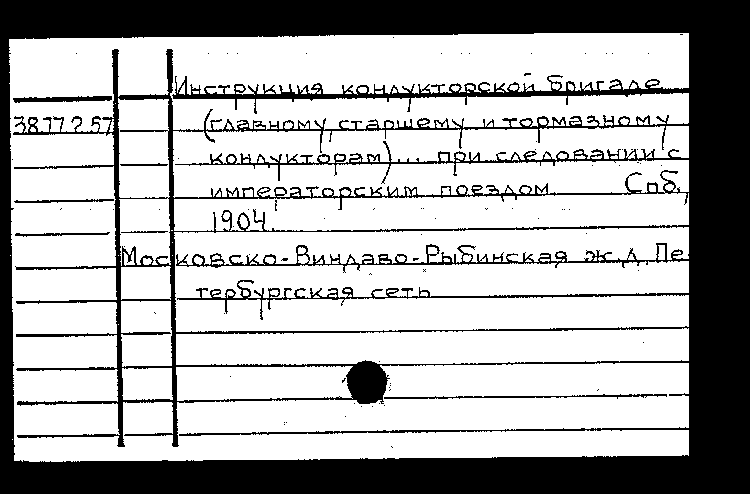 Инструкция кондукторской бригаде
38.77.2.57 (главному, старшему и тормазному
кондукторам)... при следовании с
императорским поездом Спб.,
1904.
Московско-Виндаво-Рыбинская ж.д. Пе-
тербургская сеть